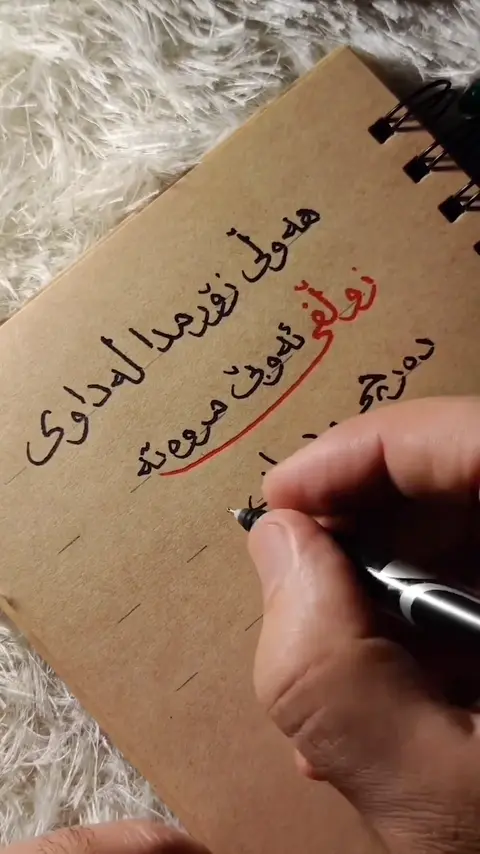 هەوڵی زۆرمدا لە داوی
زوڵفی ئەوێ مروەتە
دەرچم